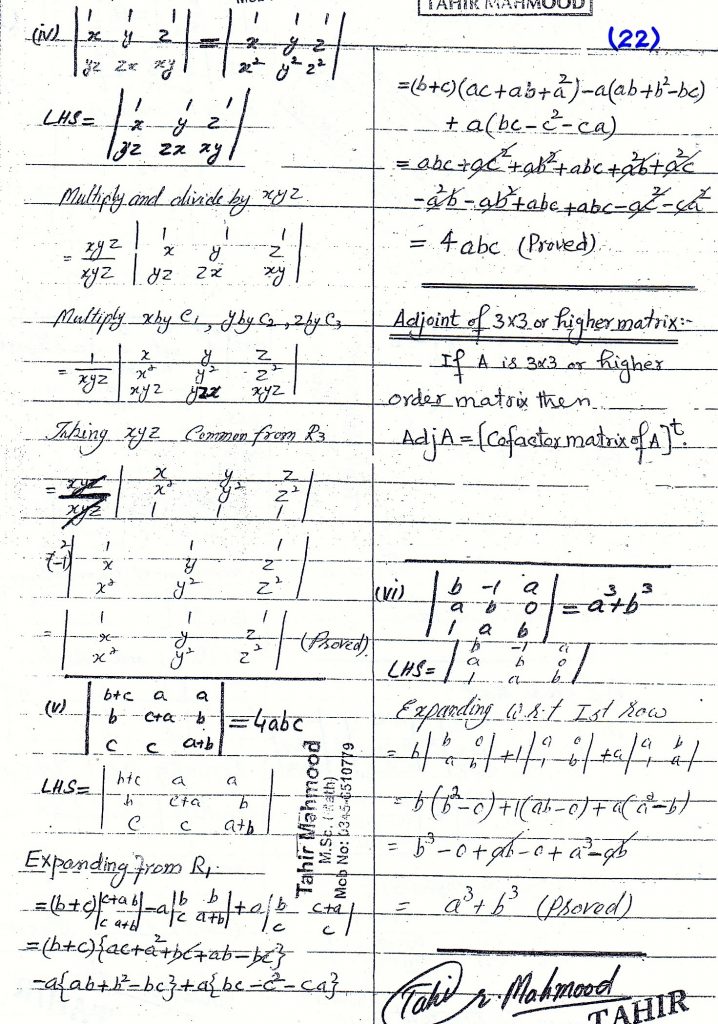 TAHIR MAHMOOD
(22)
(iv) |1 1 1; x y z; yz zx xy| = |1 1 1; x y z; x² y² z²|
LHS = |1 1 1; x y z; yz zx xy|
Multiply and divide by xyz
= xyz/xyz |1 1 1; x y z; yz zx xy|
Multiply x by C₁, y by C₂, z by C₃
= 1/xyz |x y z; x² y² z²; xyz yzx xyz|
Taking xyz Common from R₃
= xyz/xyz |x y z; x² y² z²; 1 1 1|
(-1)² |1 1 1; x y z; x² y² z²|
= |1 1 1; x y z; x² y² z²| (Proved)
(v) |b+c a a; b c+a b; c c a+b| = 4abc
LHS = |b+c a a; b c+a b; c c a+b|
Expanding from R₁
= (b+c)|c+a b; c a+b| -a|b b; c a+b| +a|b c+a; c c|
= (b+c){ac+a²+bc+ab-bc}
-a{ab+b²-bc}+a{bc-c²-ca}
Tahir Mahmood
M.Sc. (Math)
Mob No: 0345-6510779
=(b+c)(ac+ab+a²)-a(ab+b²-bc)
+a(bc-c²-ca)
= abc+ac²+ab²+abc+a²b+a²c
-a²b-ab²+abc+abc-ac²-ca²
= 4abc (Proved)
Adjoint of 3x3 or higher matrix:-
If A is 3x3 or higher
order matrix then
AdjA = [Cofactor matrix of A]ᵗ.
(vi) |b -1 a; a b 0; 1 a b| = a³+b³
LHS = |b -1 a; a b 0; 1 a b|
Expanding w.r.t Ist Row
= b|b 0; a b| +1|a 0; 1 b| +a|a b; 1 a|
= b(b²-0)+1(ab-0)+a(a²-b)
= b³-0+ab-0+a³-ab
= a³+b³ (Proved)
Tahir Mahmood
TAHIR